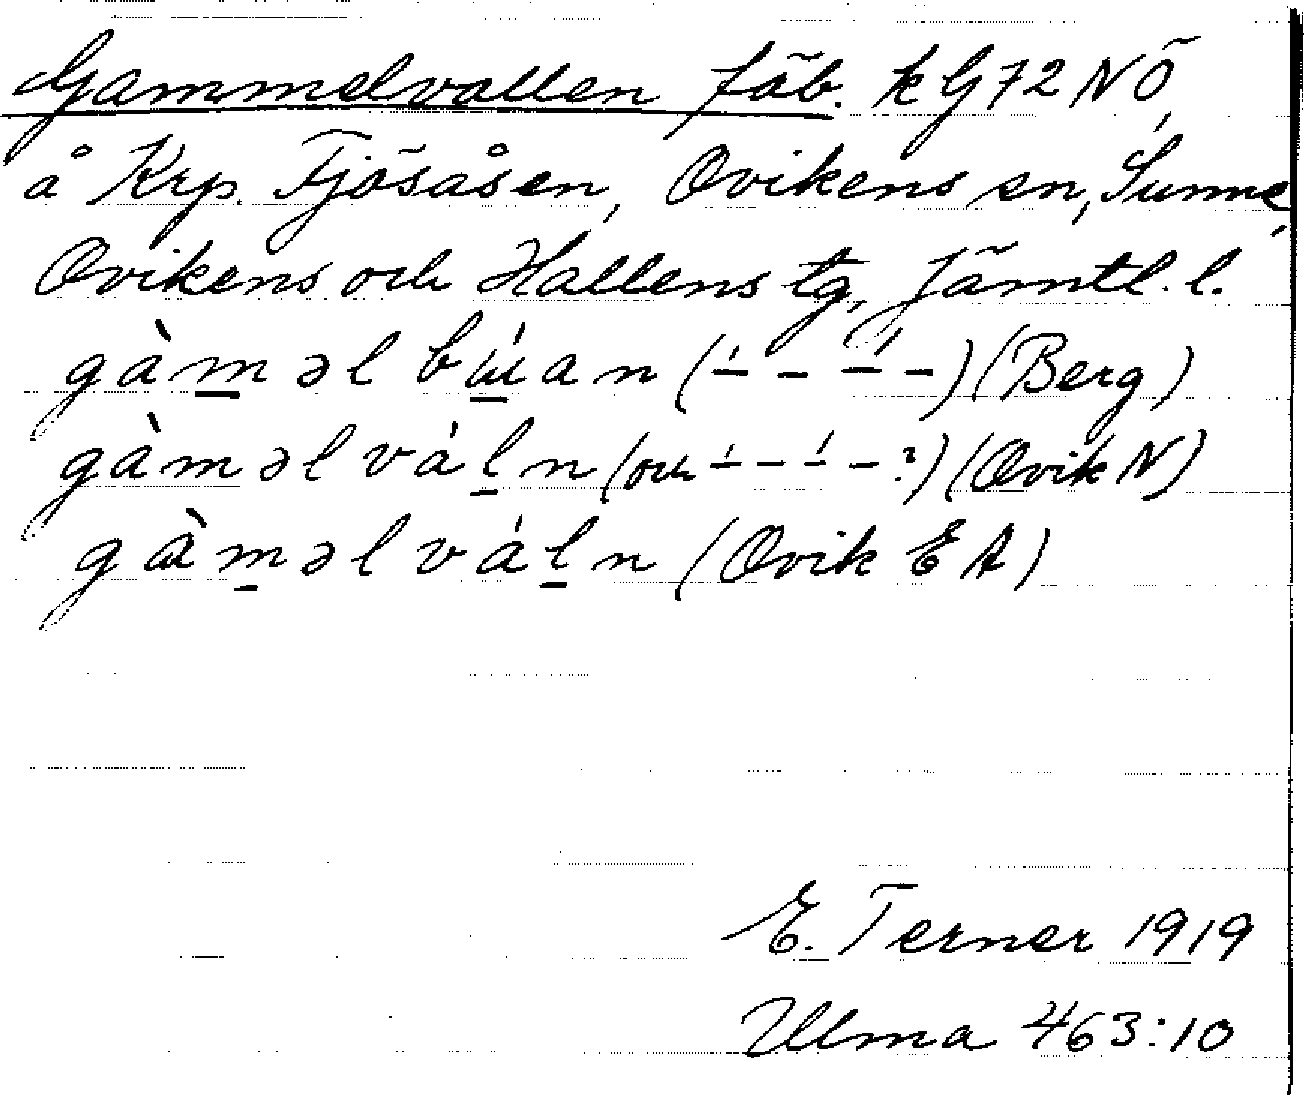 Gammelvallen fäb. k G72 NÖ,
å Krp. Fjösåsen, Ovikens sn, Sunne,
Ovikens och Hallens tg, Jämtl. l.
gàm̲əl bú̲an (–́ – –́ –) (Berg)
gàməl vál̲n (och –́ – –́ – ?) (Ovik N)
gàm̲əl vál̲n (Ovik E A)
E. Terner 1919
Ulma 463:10